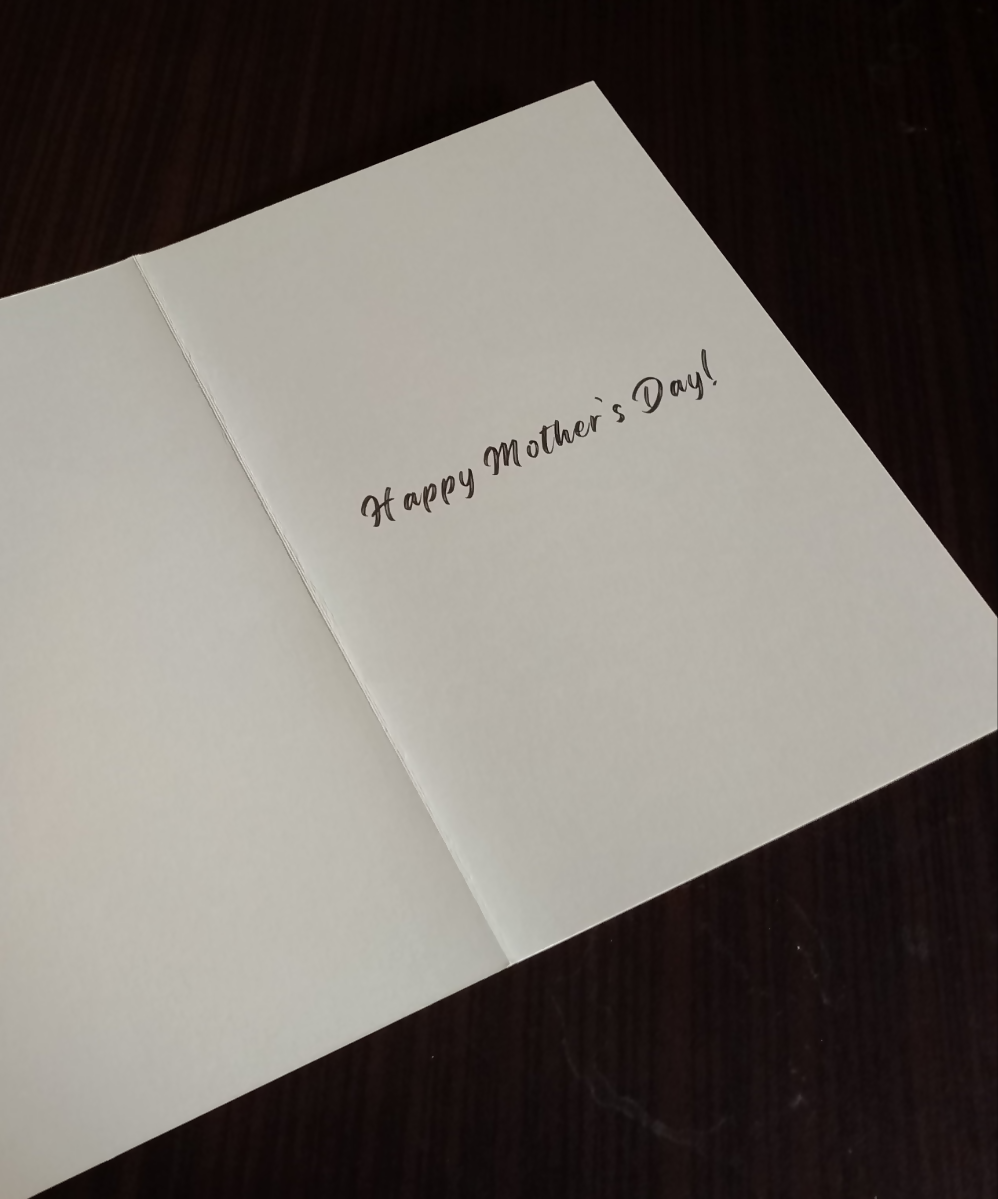 Happy Mother`s Day!